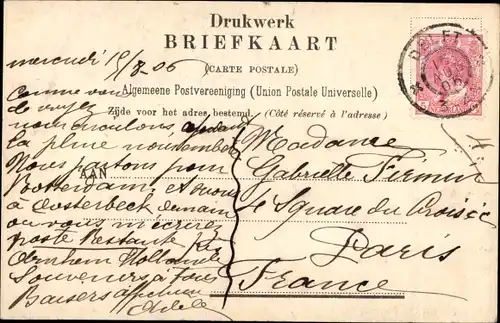 Drukwerk
BRIEFKAART
(CARTE POSTALE)
Algemeene Postvereeniging (Union Postale Universelle)
Zijde voor het adres bestemd. (Côté réservé à l'adresse)
AAN
DELFT
mercredi 15/8-06
Comme vous
le voyez
nous roulons
la pluie
Nous partons pour
Rotterdam, et
à Oosterbeck demain
ou vous m'écrirez
poste Restante
Arnhem Hollande
Souvenirs à tous
Baisers
Adèle
Madame
Gabrielle Firmin
4 Square du Croisic
Paris
France